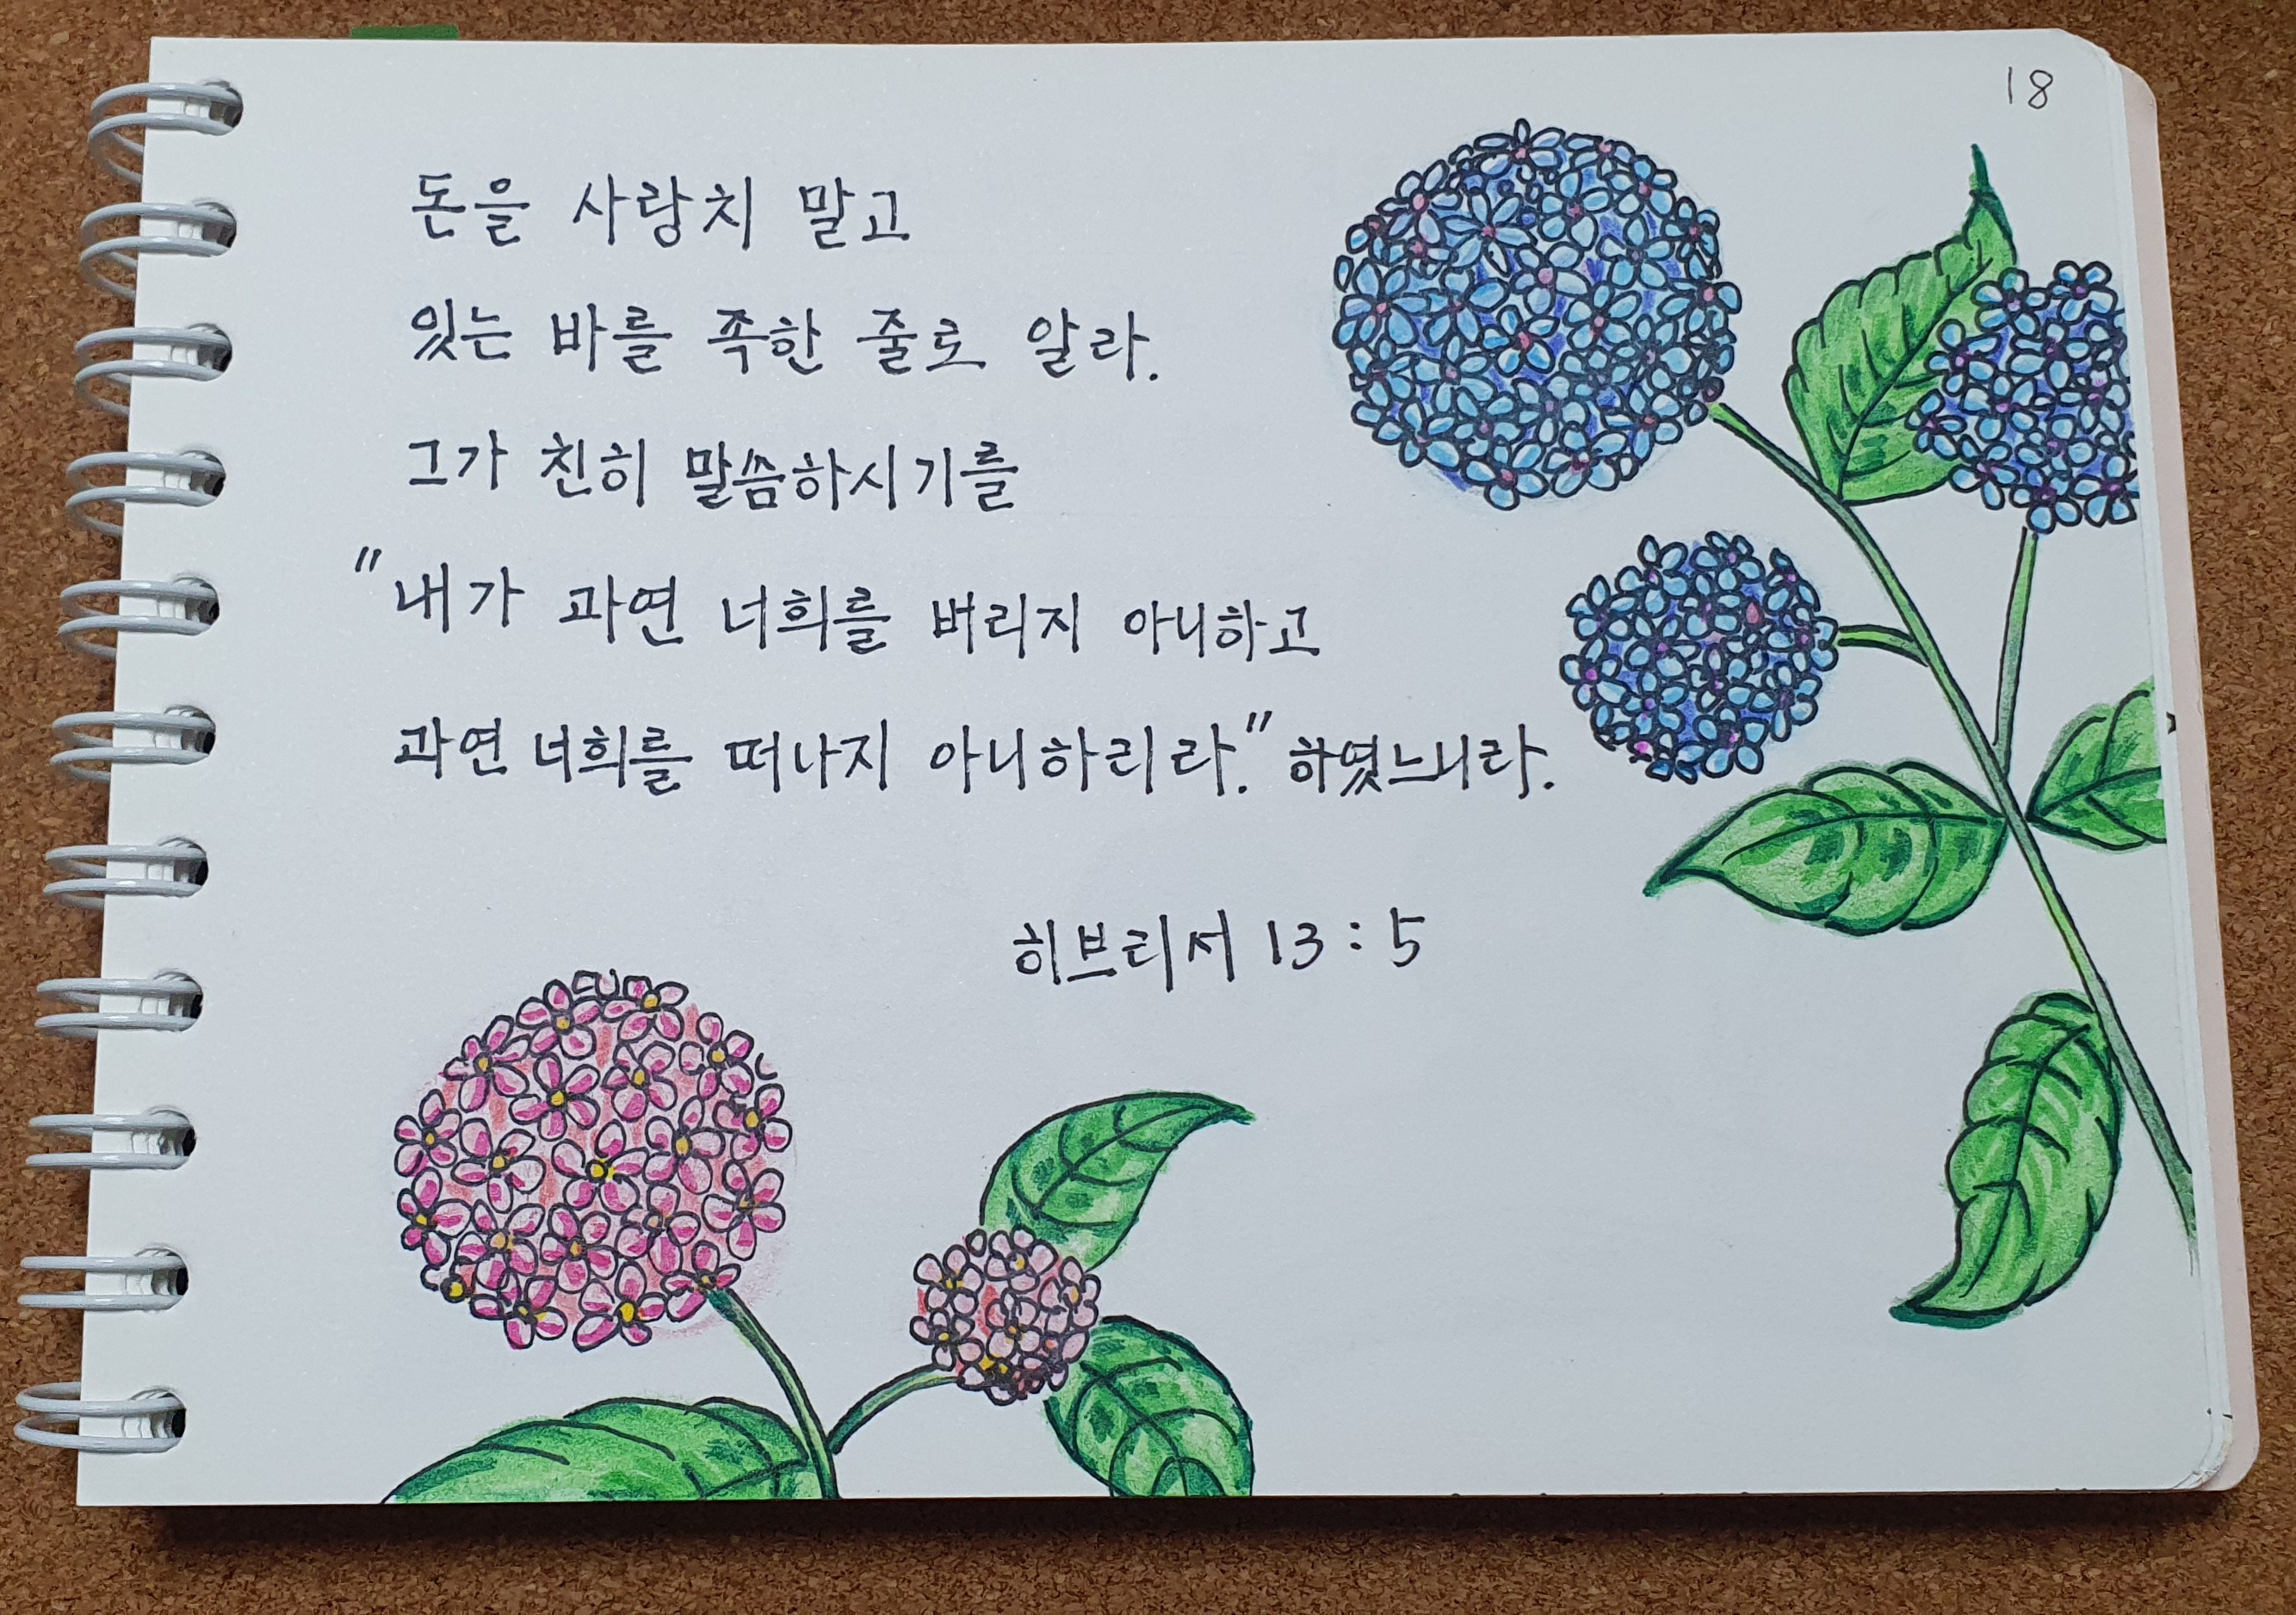 18
돈을 사랑치 말고
있는 바를 족한 줄로 알라.
그가 친히 말씀하시기를
"내가 과연 너희를 버리지 아니하고
과연 너희를 떠나지 아니하리라." 하였느니라.
히브리서 13:5